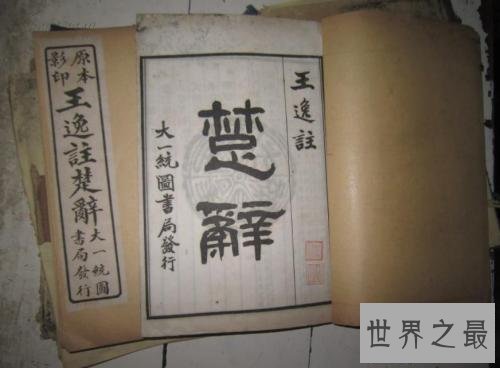 原本
影印
王逸註楚辭
大一統圖
書局發行
王逸註
楚辭
大一統圖書局發行
世界之最